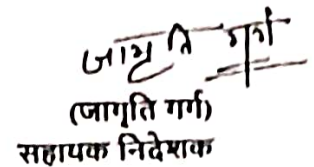 जागृति गर्ग
(जागृति गर्ग)
सहायक निदेशक